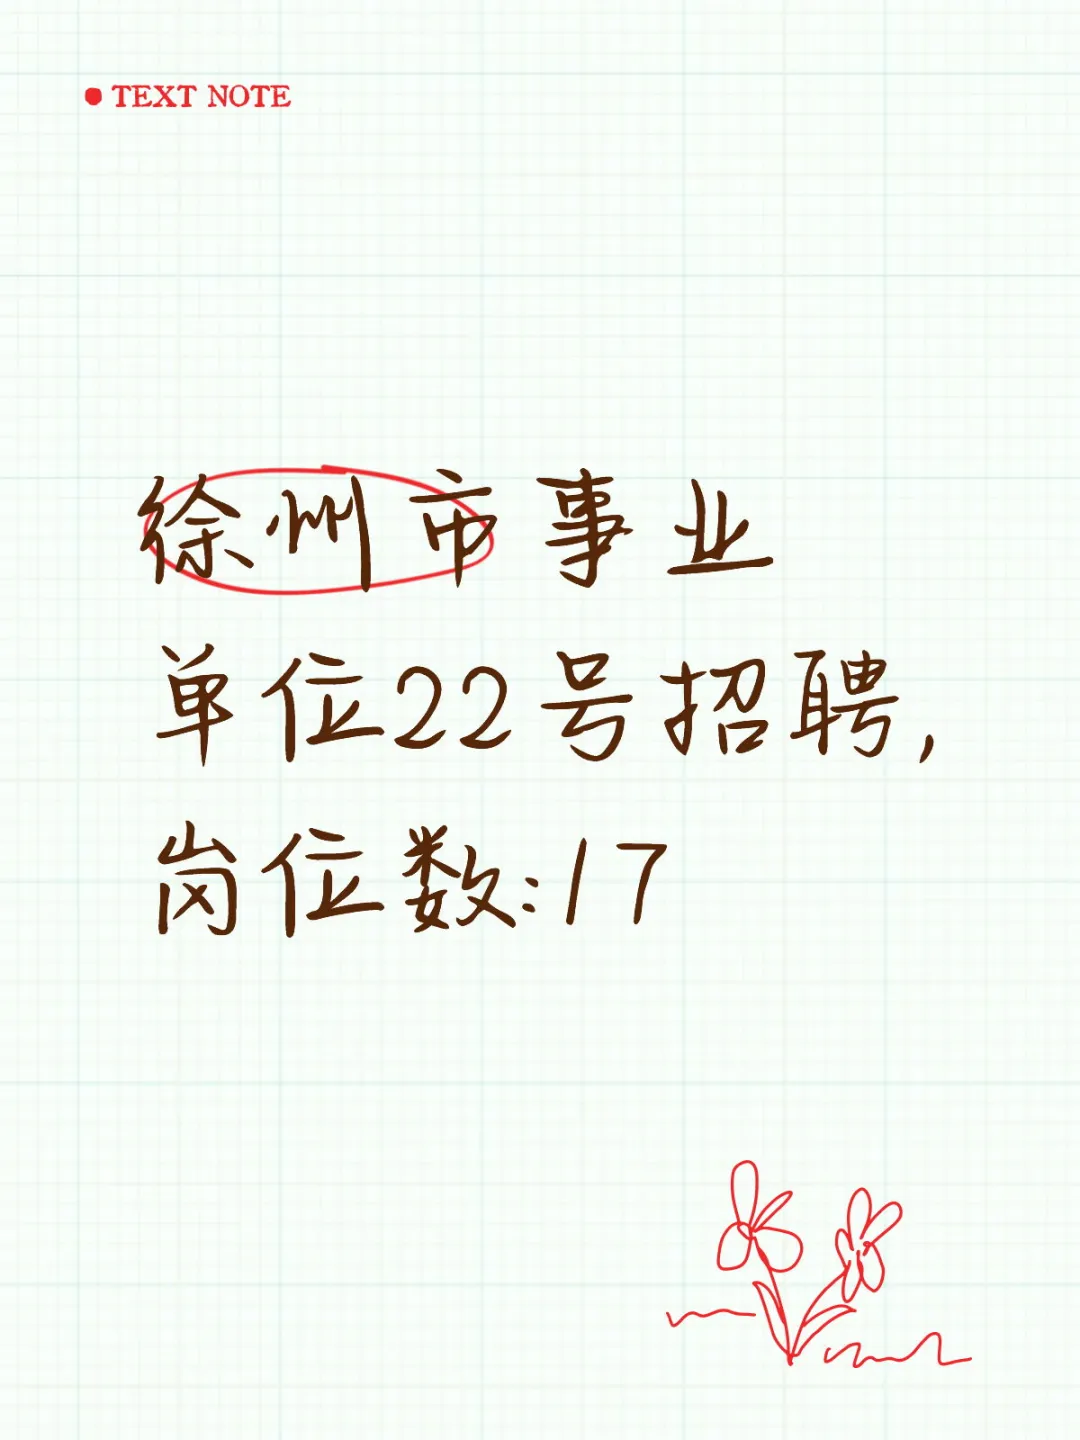 TEXT NOTE
徐州市事业
单位22号招聘,
岗位数:17